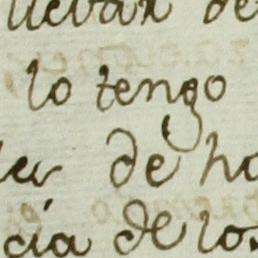 llevar de
lo tengo
de ho
cia de los